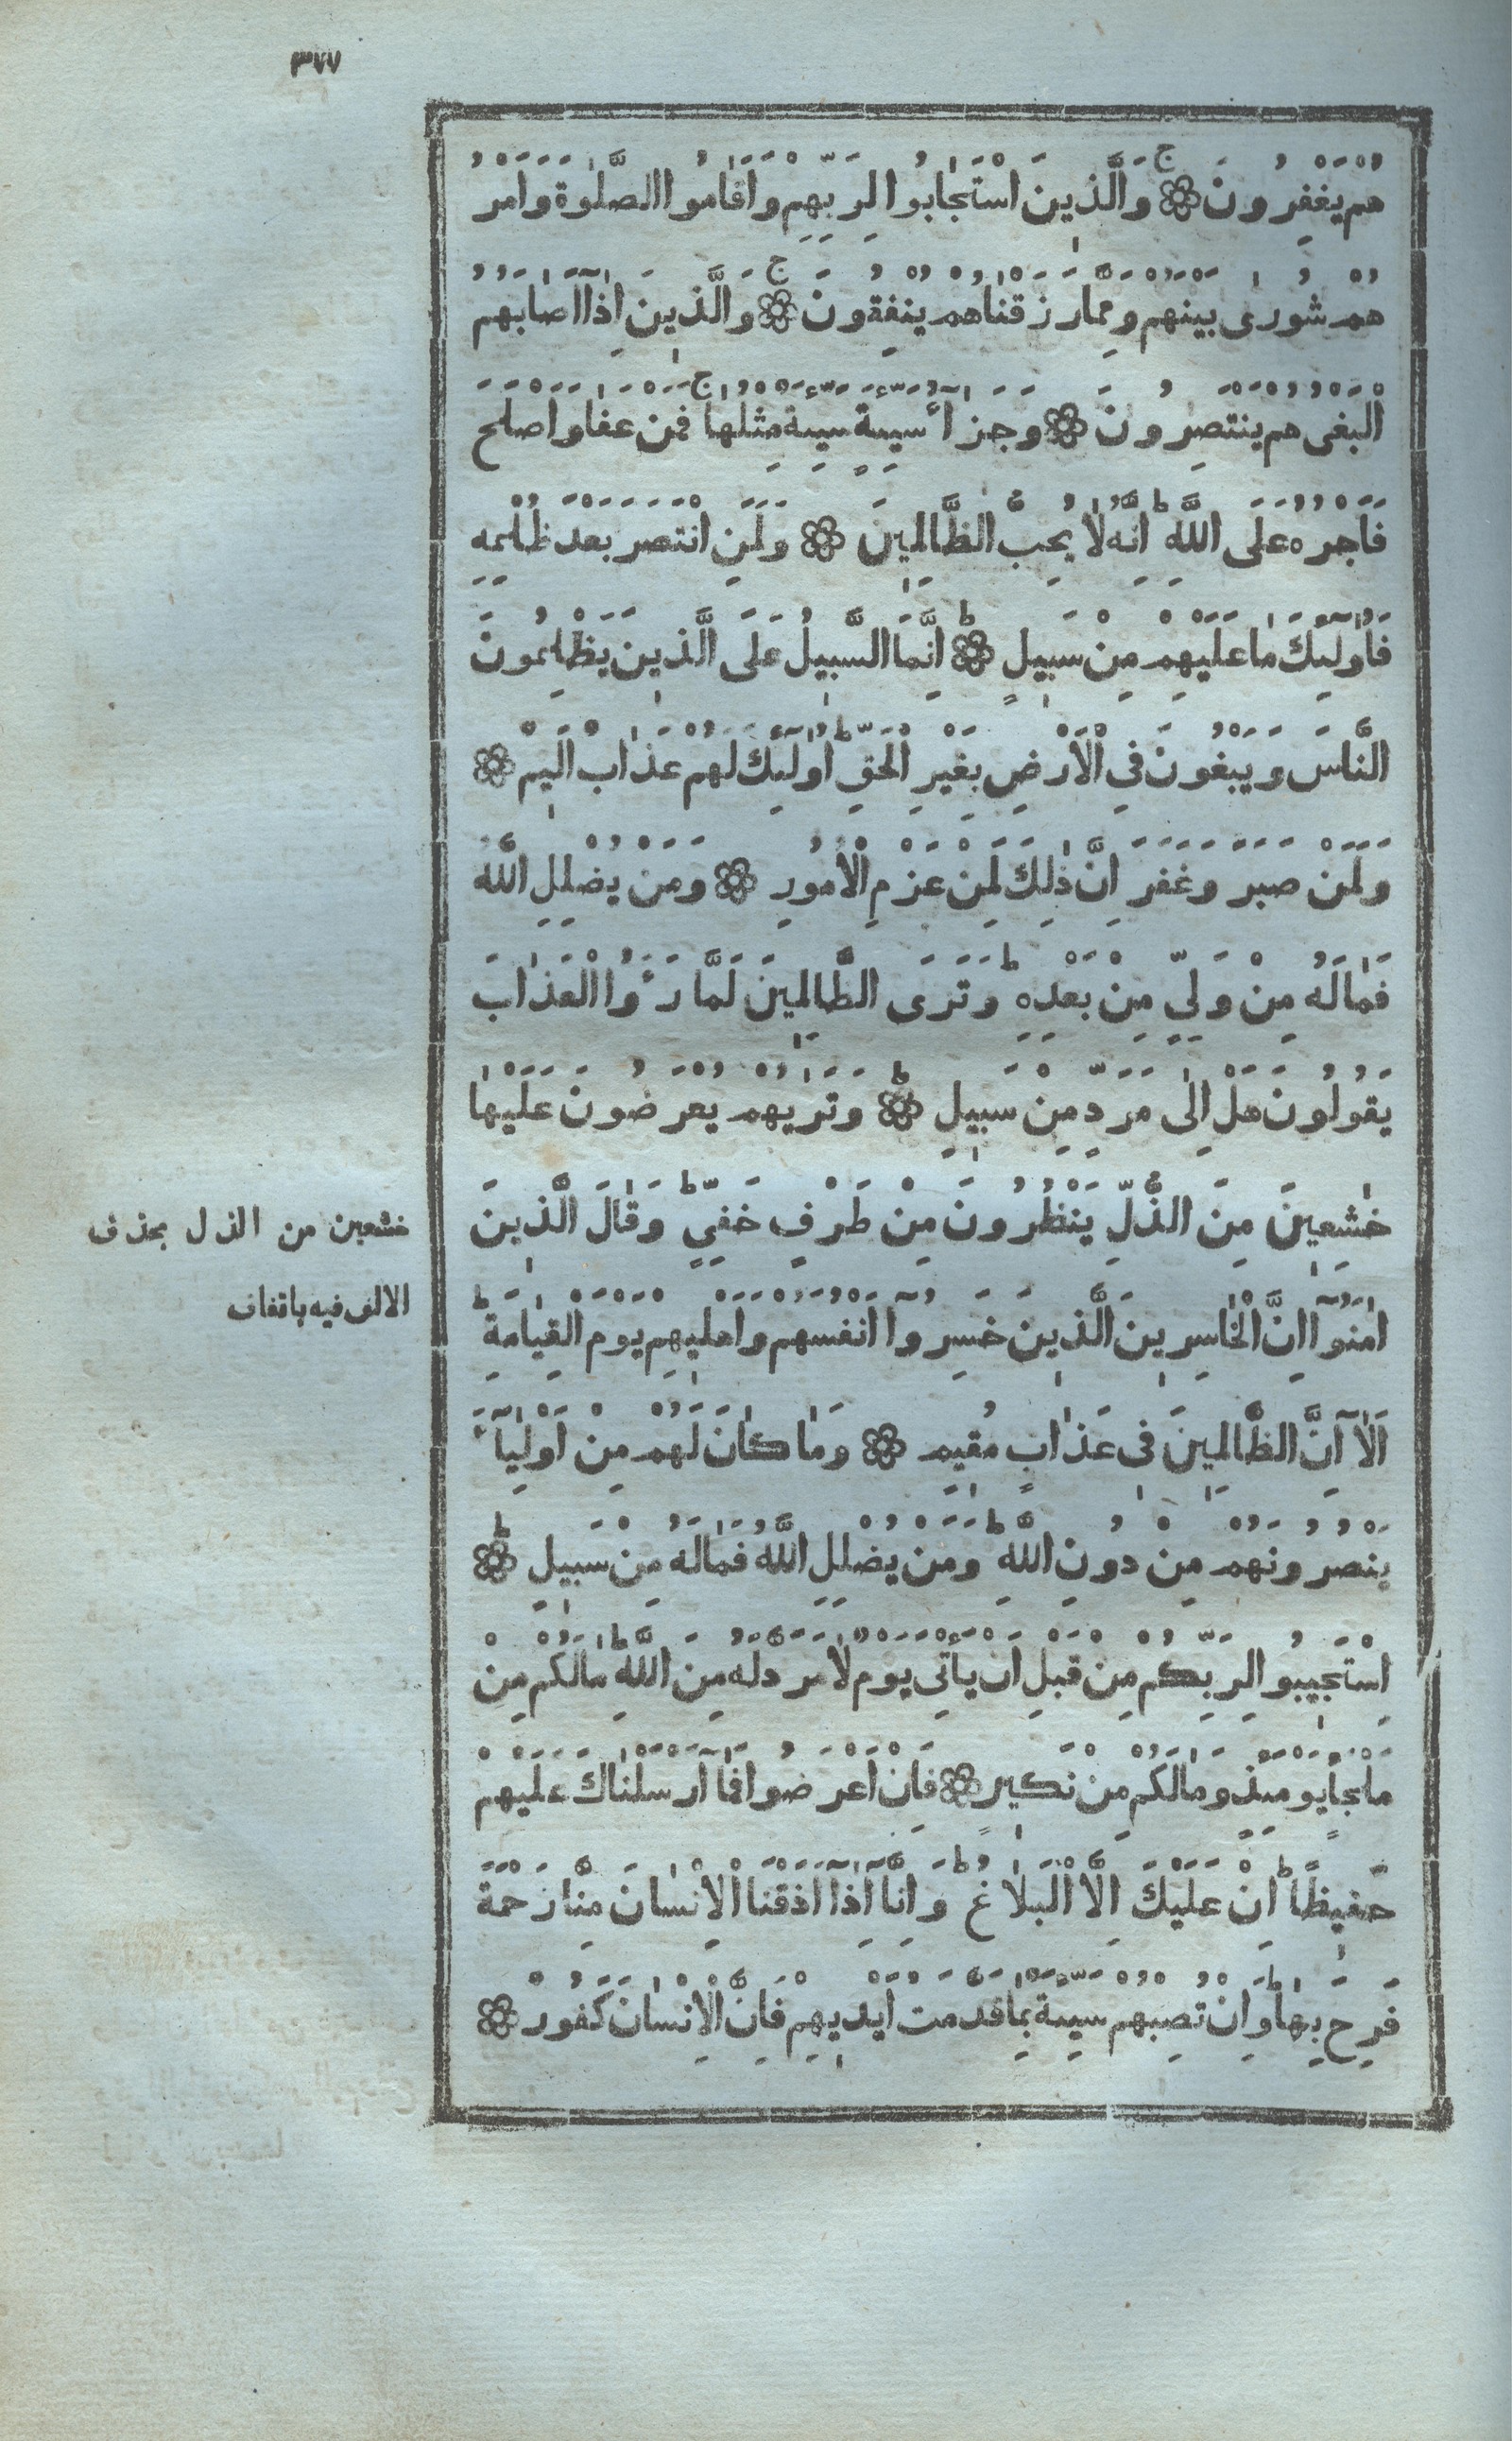 ٣٧٧
هُمْ يَغْفِرُونَ ۞ ج وَالَّذِينَ اسْتَجَابُوا لِرَبِّهِمْ وَاَقَامُوا الصَّلٰوةَ وَاَمْرُ
هُمْ شُورٰى بَيْنَهُمْ وَمِمَّا رَزَقْنَاهُمْ يُنْفِقُونَ ۞ ج وَالَّذِينَ اِذَآ اَصَابَهُمُ
الْبَغْىُ هُمْ يَنْتَصِرُونَ ۞ وَجَزَآءُ سَيِّئَةٍ سَيِّئَةٌ مِثْلُهَا ج فَمَنْ عَفَا وَاَصْلَحَ
فَاَجْرُهُ عَلَى اللّٰهِ ط اِنَّهُ لَا يُحِبُّ الظَّالِمِينَ ۞ وَلَمَنِ انْتَصَرَ بَعْدَ ظُلْمِهِ
فَاُولٰٓئِكَ مَا عَلَيْهِمْ مِنْ سَبِيلٍ ط ۞ اِنَّمَا السَّبِيلُ عَلَى الَّذِينَ يَظْلِمُونَ
النَّاسَ وَيَبْغُونَ فِى الْاَرْضِ بِغَيْرِ الْحَقِّ ط اُولٰٓئِكَ لَهُمْ عَذَابٌ اَلِيمٌ ۞
وَلَمَنْ صَبَرَ وَغَفَرَ اِنَّ ذٰلِكَ لَمِنْ عَزْمِ الْاُمُورِ ۞ وَمَنْ يُضْلِلِ اللّٰهُ
فَمَا لَهُ مِنْ وَلِىٍّ مِنْ بَعْدِهِ ط وَتَرَى الظَّالِمِينَ لَمَّا رَءَوُا الْعَذَابَ
يَقُولُونَ هَلْ اِلٰى مَرَدٍّ مِنْ سَبِيلٍ ط ۞ وَتَرٰيهُمْ يُعْرَضُونَ عَلَيْهَا
خٰشِعِينَ مِنَ الذُّلِّ يَنْظُرُونَ مِنْ طَرْفٍ خَفِىٍّ ط وَقَالَ الَّذِينَ
خشعين من الذل بحذف
اٰمَنُوٓا اِنَّ الْخَاسِرِينَ الَّذِينَ خَسِرُوٓا اَنْفُسَهُمْ وَاَهْلِيهِمْ يَوْمَ الْقِيَامَةِ ط
الالف فيه باتفاف
اَلَآ اِنَّ الظَّالِمِينَ فِى عَذَابٍ مُقِيمٍ ۞ وَمَا كَانَ لَهُمْ مِنْ اَوْلِيَآءَ
يَنْصُرُونَهُمْ مِنْ دُونِ اللّٰهِ ط وَمَنْ يُضْلِلِ اللّٰهُ فَمَا لَهُ مِنْ سَبِيلٍ ط ۞
اِسْتَجِيبُوا لِرَبِّكُمْ مِنْ قَبْلِ اَنْ يَأْتِىَ يَوْمٌ لَا مَرَدَّ لَهُ مِنَ اللّٰهِ ط مَا لَكُمْ مِنْ
مَلْجَأٍ يَوْمَئِذٍ وَمَا لَكُمْ مِنْ نَكِيرٍ ۞ فَاِنْ اَعْرَضُوا فَمَآ اَرْسَلْنَاكَ عَلَيْهِمْ
حَفِيظًا ط اِنْ عَلَيْكَ اِلَّا الْبَلَاغُ ط وَاِنَّآ اِذَآ اَذَقْنَا الْاِنْسَانَ مِنَّا رَحْمَةً
فَرِحَ بِهَا ط وَاِنْ تُصِبْهُمْ سَيِّئَةٌ بِمَا قَدَّمَتْ اَيْدِيهِمْ فَاِنَّ الْاِنْسَانَ كَفُورٌ ۞